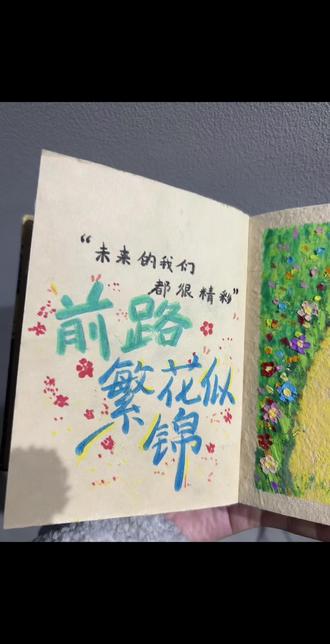 “未来的我们
都很精彩”
前路
繁花似
锦